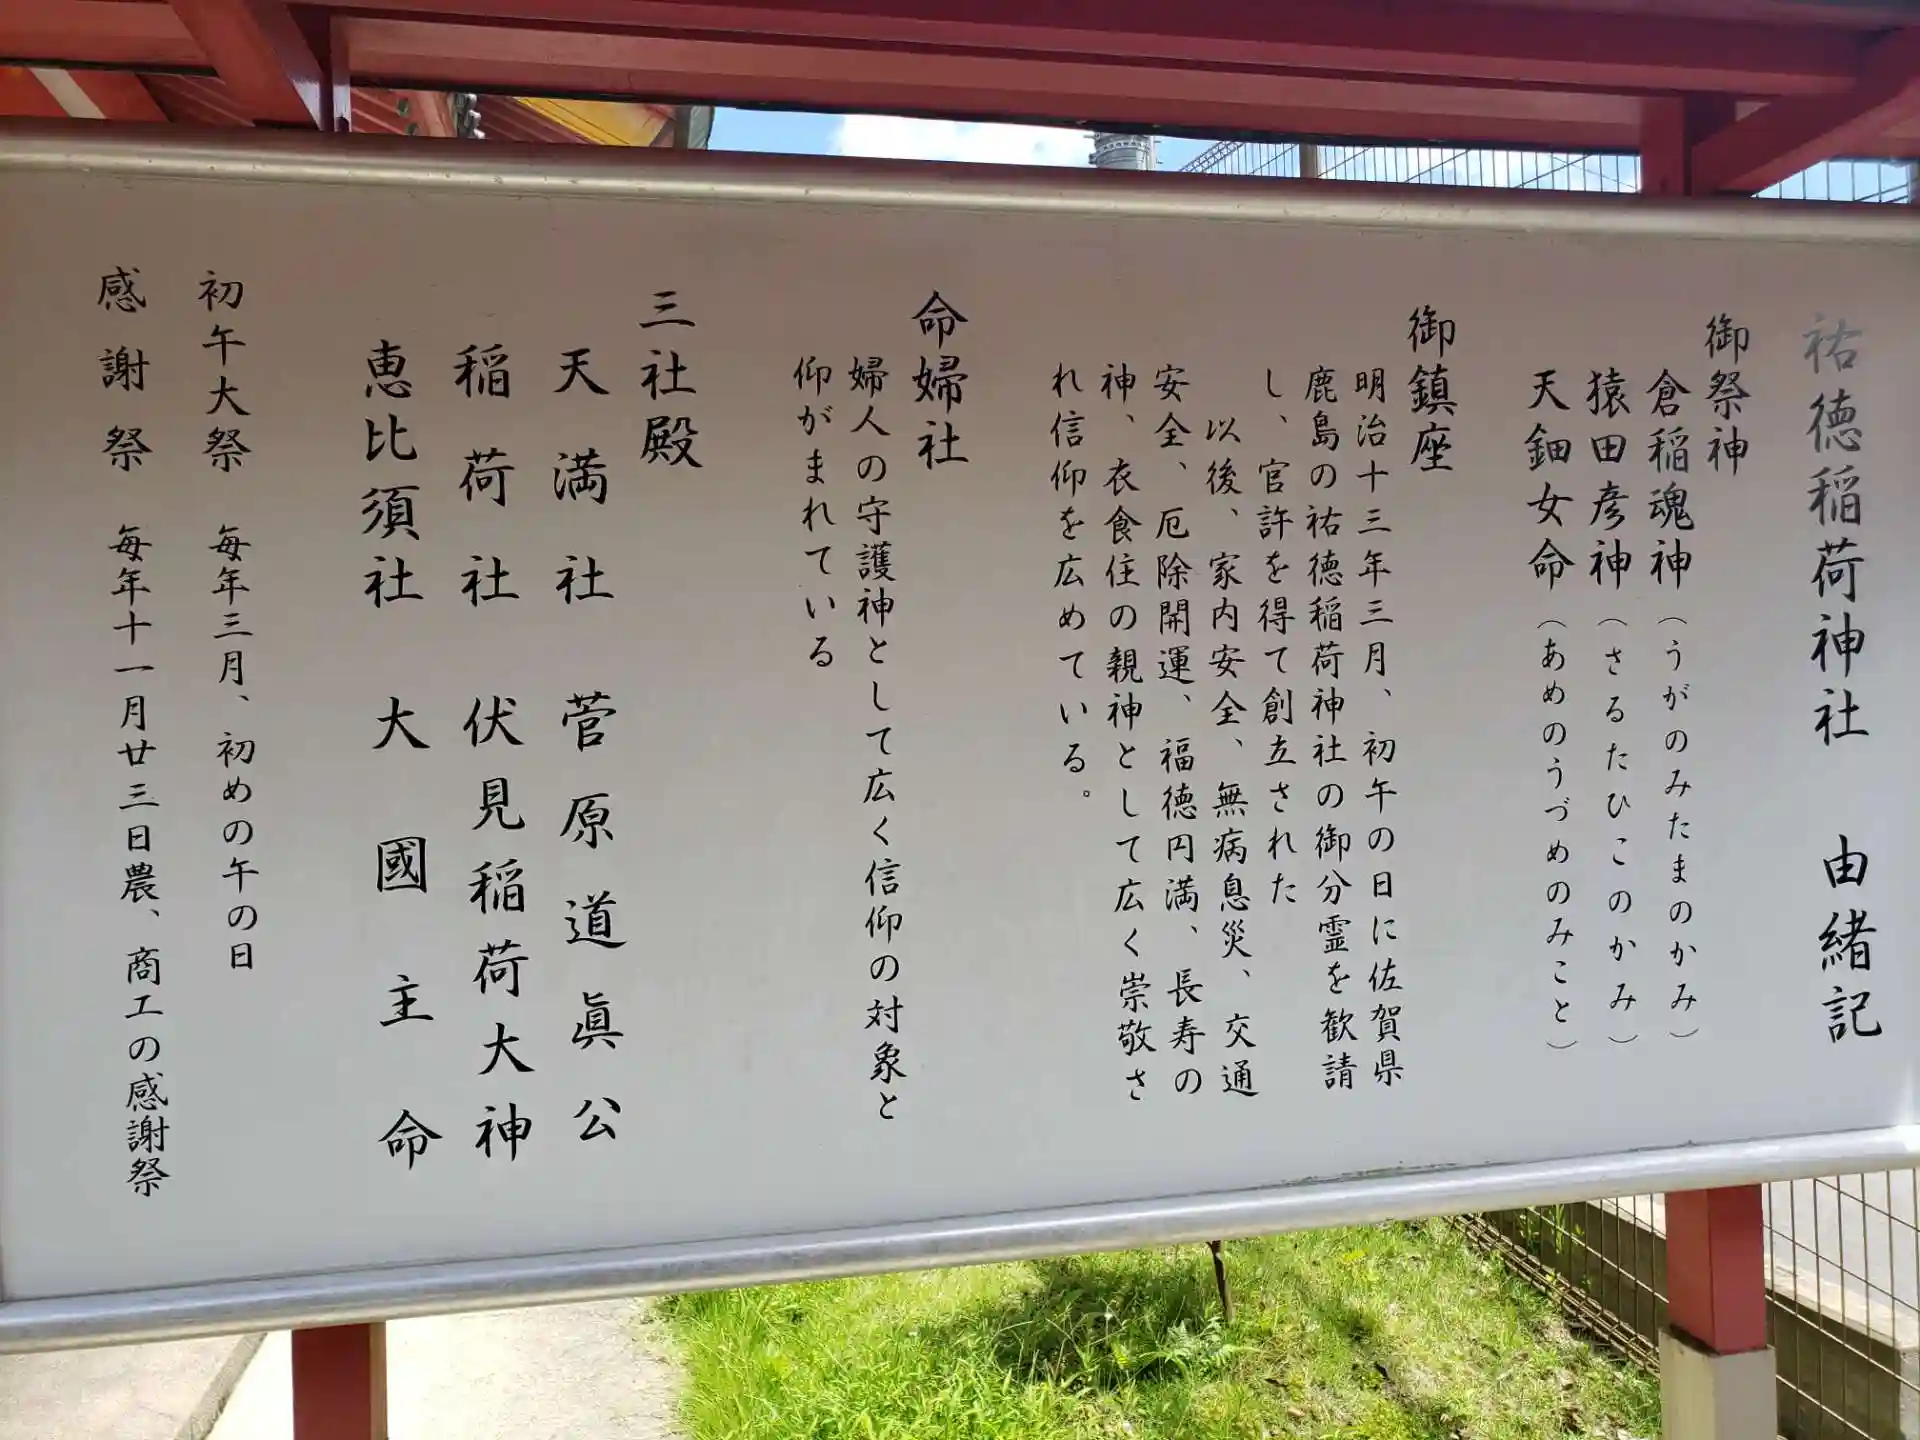 祐徳稲荷神社　由緒記
御祭神
倉稲魂神（うがのみたまのかみ）
猿田彦神（さるたひこのかみ）
天鈿女命（あめのうづめのみこと）
御鎮座
明治十三年三月、初午の日に佐賀県
鹿島の祐徳稲荷神社の御分霊を歓請
し、官許を得て創立された
以後、家内安全、無病息災、交通
安全、厄除開運、福徳円満、長寿の
神、衣食住の親神として広く崇敬さ
れ信仰を広めている。
命婦社
婦人の守護神として広く信仰の対象と
仰がまれている
三社殿
天満社　菅原道眞公
稲荷社　伏見稲荷大神
恵比須社　大國主命
初午大祭　毎年三月、初めの午の日
感謝祭　毎年十一月廿三日農、商工の感謝祭